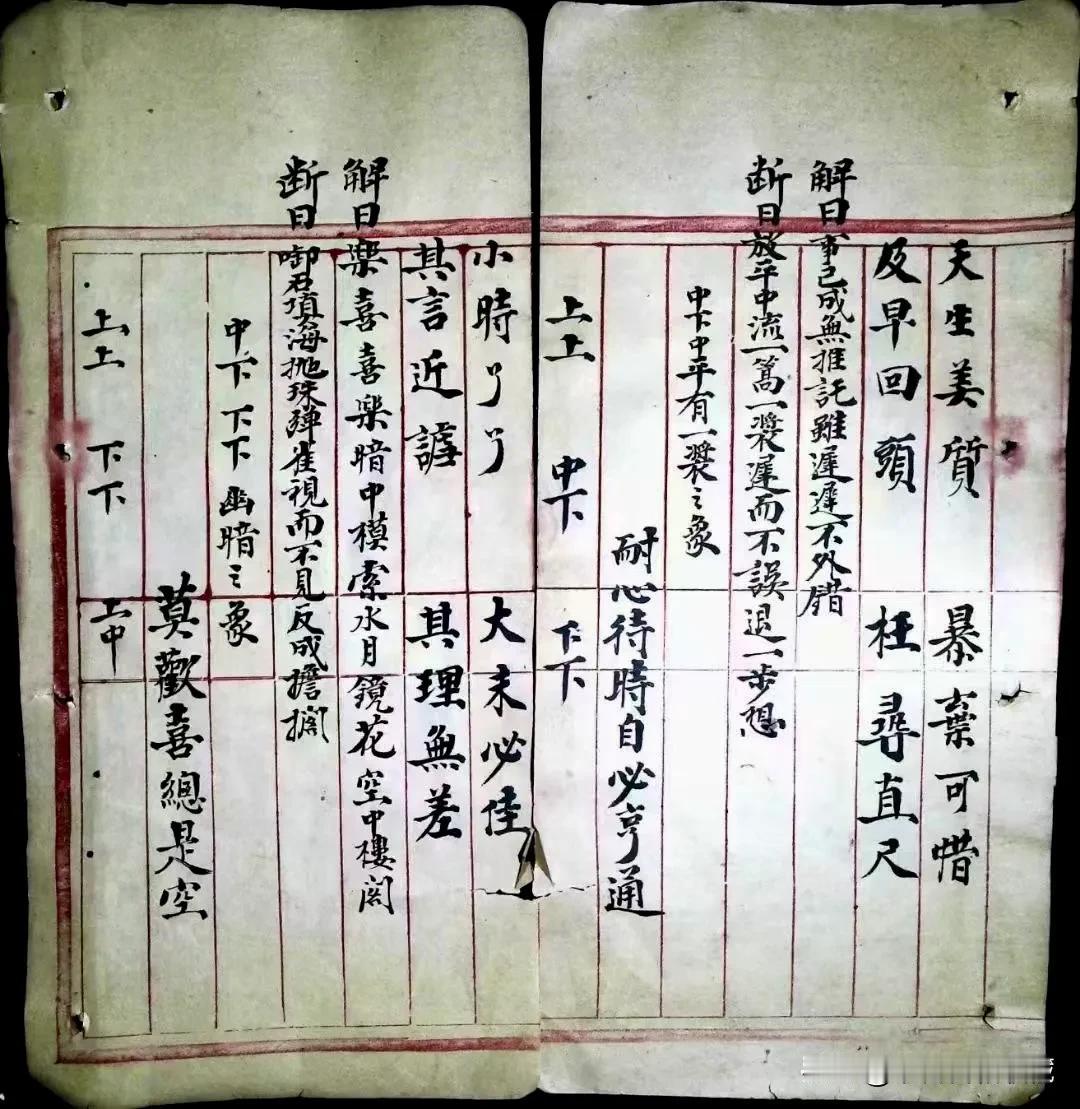 天生美質　暴棄可惜
及早回頭　枉尋直尺
解曰事已成無推託雖遲遲不外錯
断曰放平中流一篙一槳遲而不誤退一步想
中下中平有一槳之象
耐心待時自必亨通
上上　中下　下下
小時了了　大未必佳
其言近謔　其理無差
解曰樂喜喜樂暗中模索水月鏡花空中樓阁
断曰啣石填海抛珠弹雀視而不見反成擔擱
中下下下幽暗之象
莫歡喜總是空
上上　下下　上中